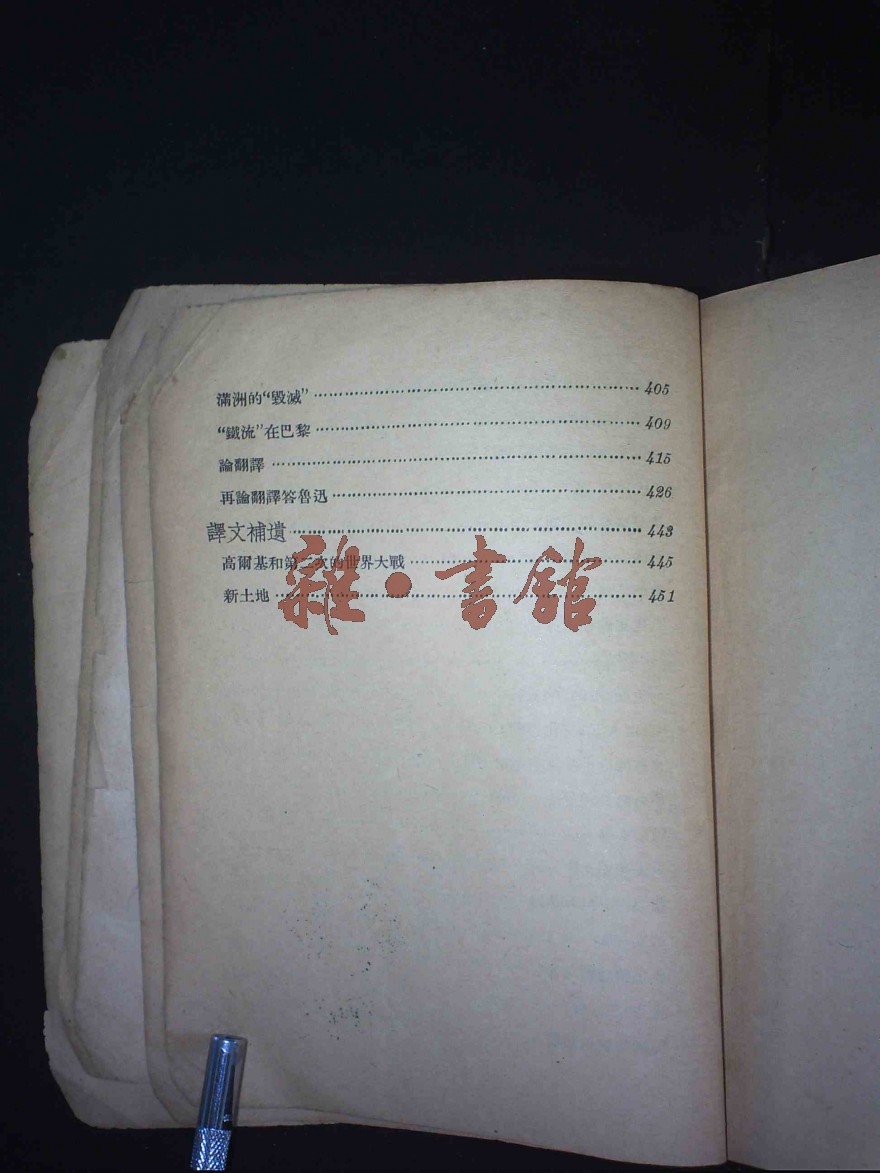 滿洲的“毀滅” ⋯⋯⋯⋯⋯⋯ 405
“鐵流”在巴黎 ⋯⋯⋯⋯⋯⋯ 409
論翻譯 ⋯⋯⋯⋯⋯⋯ 415
再論翻譯答魯迅 ⋯⋯⋯⋯⋯⋯ 426
譯文補遺 ⋯⋯⋯⋯⋯⋯ 443
高爾基和第二次的世界大戰 ⋯⋯⋯⋯⋯⋯ 445
新土地 ⋯⋯⋯⋯⋯⋯ 451
雜•書館